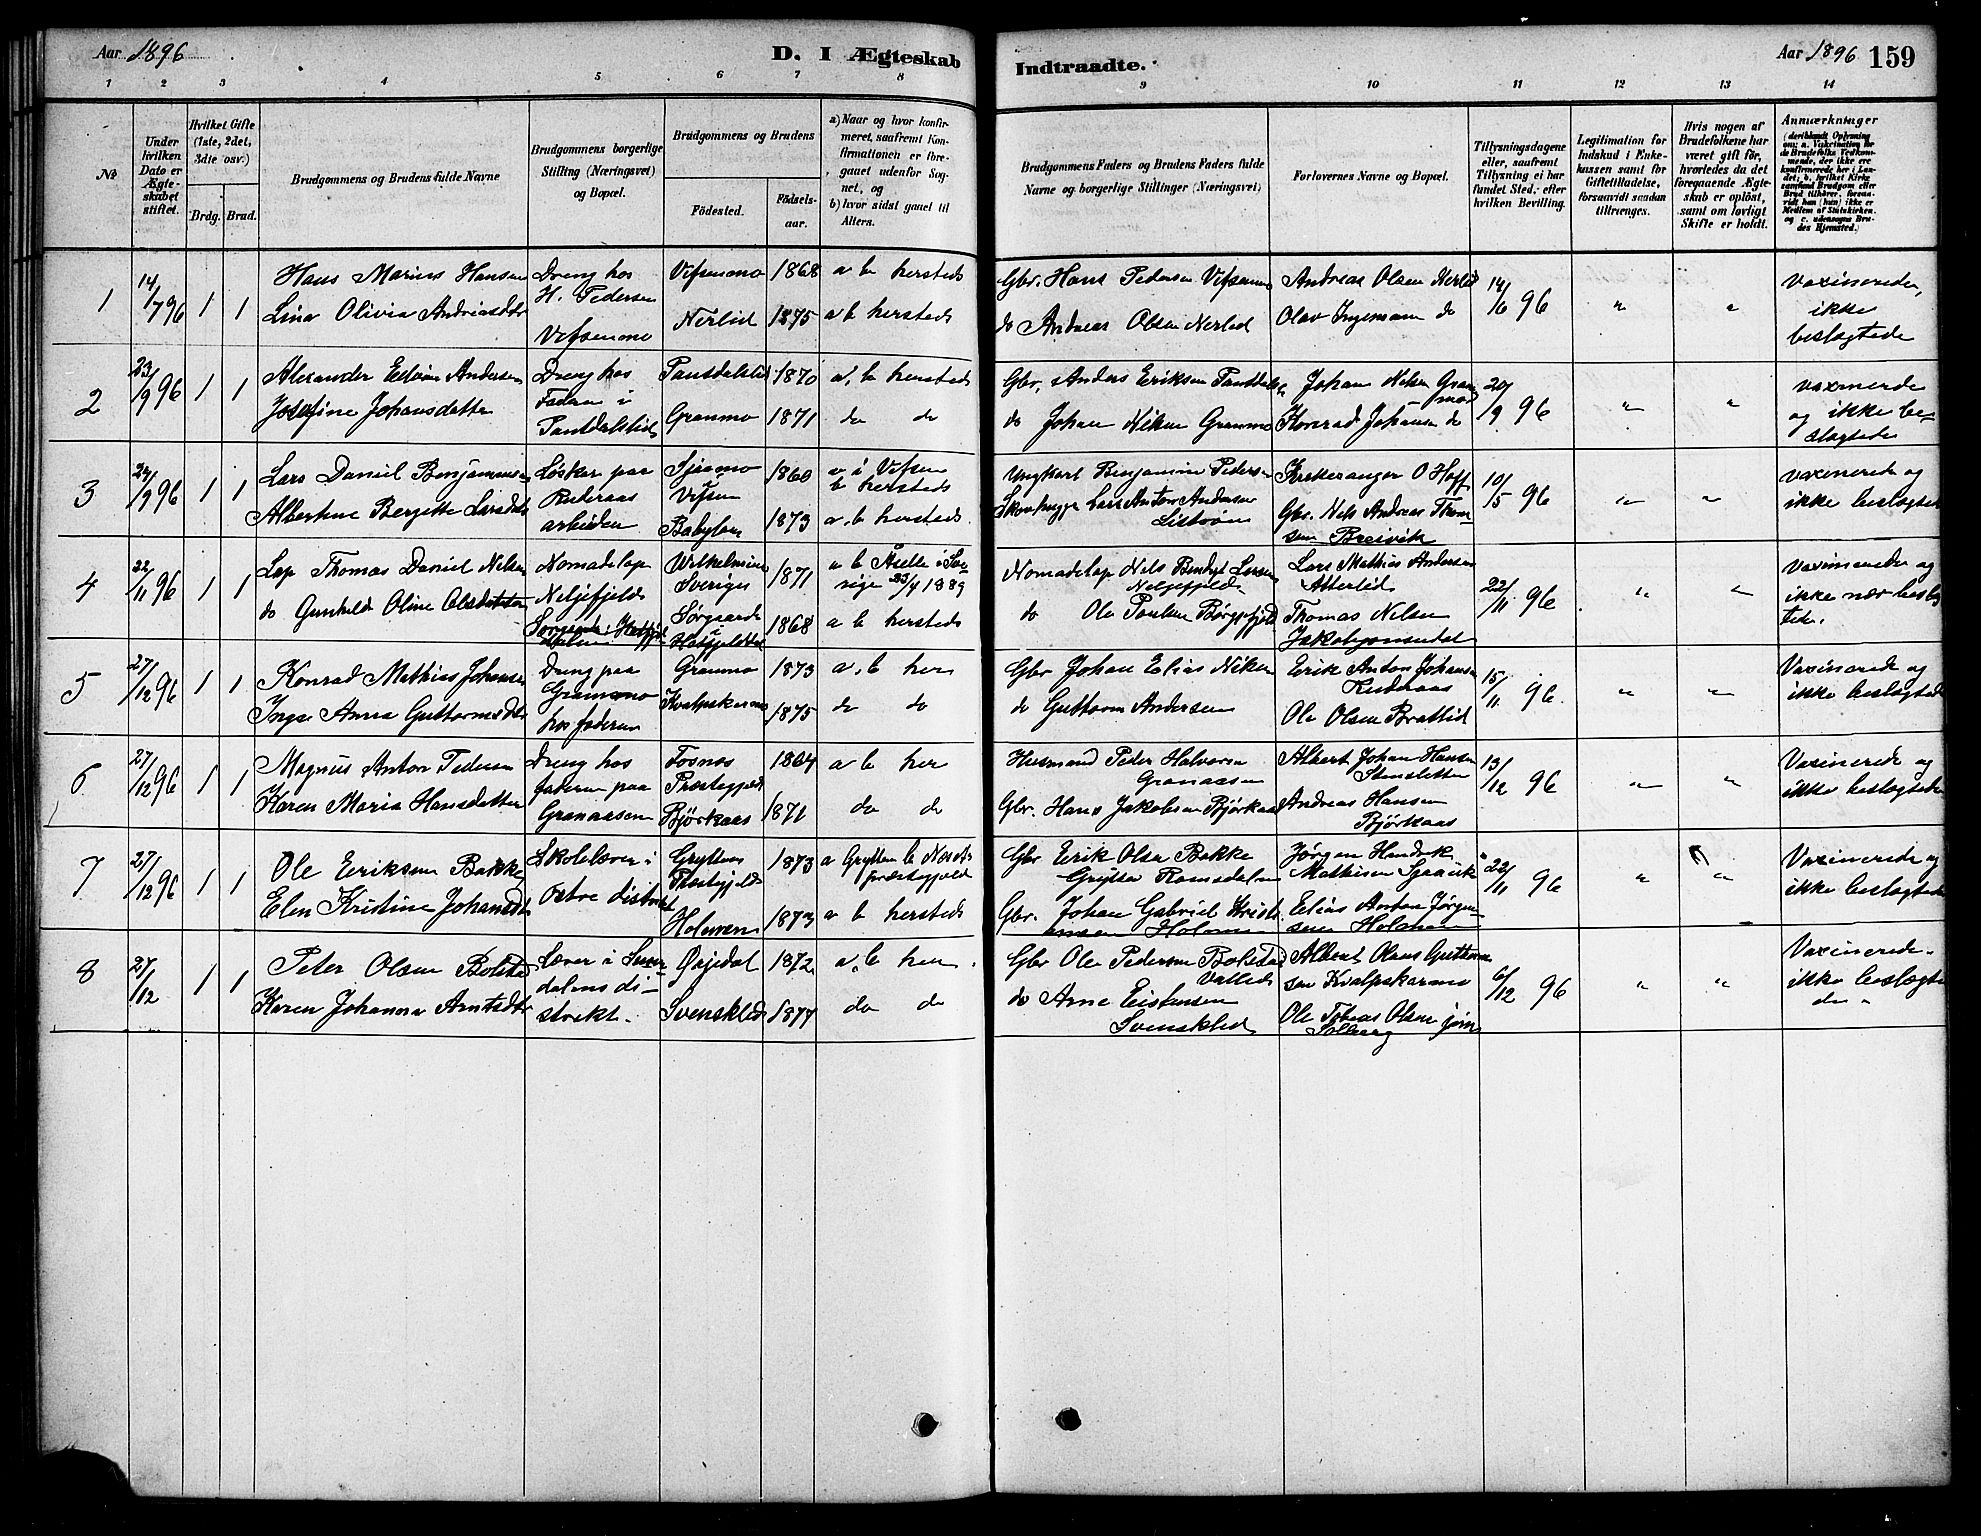 Aar 1896
D. I Ægteskab
Indtraadte.
Aar 1896 159
1 2 3 4 5 6 7 8 9 10 11 12 13 14
No
Under hvilken Dato er Ægteskabet stiftet.
Hvilket Gifte (1ste, 2det, 3dte osv.)
Brdg. Brud.
Brudgommens og Brudens fulde Navne
Brudgommens borgerlige Stilling (Næringsvei) og Bopæl.
Brudgommens og Brudens
Födested.
Födsels-aar.
a) Naar og hvor konfirmeret, saafremt Konfirmationen er foregaaet udenfor Sognet, og
b) hvor sidst gaaet til Alters.
Brudgommens Faders og Brudens Faders fulde Navne og borgerlige Stillinger (Næringsvei)
Forlovernes Navne og Bopæl.
Tillysningsdagene eller, saafremt Tillysning ei har fundet Sted, efter hvilken Bevilling.
Legitimation for Indskud i Enkekassen samt for Giftetilladelse, forsaavidt saadan tiltrænges.
Hvis nogen af Brudefolkene har været gift för, hvorledes da det foregaaende Ægteskab er oplöst, samt om lovligt Skifte er holdt.
Anmærkninger
1 14/7 96 1 1
Hans Marius Hansen
Lina Olivia Andriasdtr
Dreng hos
H. Pedersen
Vefsenmo
Vefsenmo 1868 a b hersteds
Nerlid 1875 a b hersteds
Gbr. Hans Pedersen Vefsenmo
do Andreas Olsen Nerlid
Andreas Olsen Nerlid
Olav Ingemann do
14/6 96 " "
Vaxinerede,
ikke
beslægtede
2 23/9 96 1 1
Alexander Edvin Andersen
Josefine Johansdatter
Dreng hos
Faderen i
1870 a, b hersteds
Granmo 1871 do do
Gbr. Anders Eriksen
do Johan Nilsen Granmo
Johan Nilsen Granmo
Konrad Johansen do
20/9 96 " "
vaxinerede
og ikke be-
slægtede
3 24/9 96 1 1
Lars Daniel Benjaminsen
Albertine Bergitte Larsdtr
Løskar paa
Ruderaas
arbeider
Vefsen 1860 a i Vefsen
b hersteds
1873 a, b hersteds
Ungkarl Benjamin Pedersen
Skovhugger Lars Anton Andersen
Kirkesanger O Hoff
Gbr. Nils Andreas Thom-
sen Breivik
10/5 96 " "
vaxinerede og
ikke beslægtede
4 22/11 96 1 1
Lap Thomas Daniel Nilsen
do Gunhild Oline Olsdatter
Nomadelap
Wilhelmina
Sverige 1871
a b Åsele i Sve-
rige 23/4 1889
Sørgaarden
i
Hatfjelddal 1868 a b hersteds
Nomadelap Nils Larsen
do Ole Paulsen Børgefjeld
Lars Mathias Andersen
Thomas Nilsen
22/11 96 " "
vaxinerede og
ikke nær beslæg-
tede.
5 27/12 96 1 1
Konrad Mathias Johansen
Inga Anna Guttormsdtr
Dreng paa
Granmo
hos faderen
Granmo 1873 a, b her
Kvalpskarmo 1875 do do
Gbr Johan Elias Nilsen
do Guttorm Andersen
Erik Anton Johansen
Ruderaas
Ole Olsen Brattlid
15/11 96. " "
Vaxinerede og
ikke beslægtede
6 27/12 96 1 1
Magnus Anton Pedersen
Karen Maria Hansdatter
Dreng hos
faderen paa
Granaasen
Fosnes
Præstegjeld 1864 a b her
Bjørkaas 1871 do do
Husmand Peder Halvorsen
Granaasen
Gbr. Hans Jakobsen Bjørkaas
Albert Johan Hansen
Stensletten
Andreas Hansen
Bjørkaas
13/12 96 " "
Vaxinerede og
ikke beslægtede
7 27/12 96 1 1
Ole Eriksen Bakke
Elen Kristine Johansdtr
Skolelærer i
østre distrikt
Gryttens
Præstegjeld 1873 a Grytten b
præstegjeld
Holmen 1873 a b hersteds
Gbr Erik Olsen Bakke
Grytten Romsdalen
Gbr. Johan Gabriel Kristi-
ansen Holmen
Jørgen Hendrik
Mathisen
Elias Anton Jørgen-
sen Holmen
22/11 96 " "
Vaxinerede og
ikke beslægtede
8 27/12 1 1
Peter Olsen Bolstad
Karen Johanna Arntsdtr
Lærer i Susen-
dalens di-
strikt.
Ørjedal 1872 a, b her
Svensklid 1877 do do
Gbr Ole Pedersen Bolstad
do Arne Eistensen
Svensklid
Albert Olaus Guttorm-
sen Kvalpskarmo
Ole Tobias Olsen
Solberg
6/12 96 " "
Vaxinerede
ikke beslægte
de